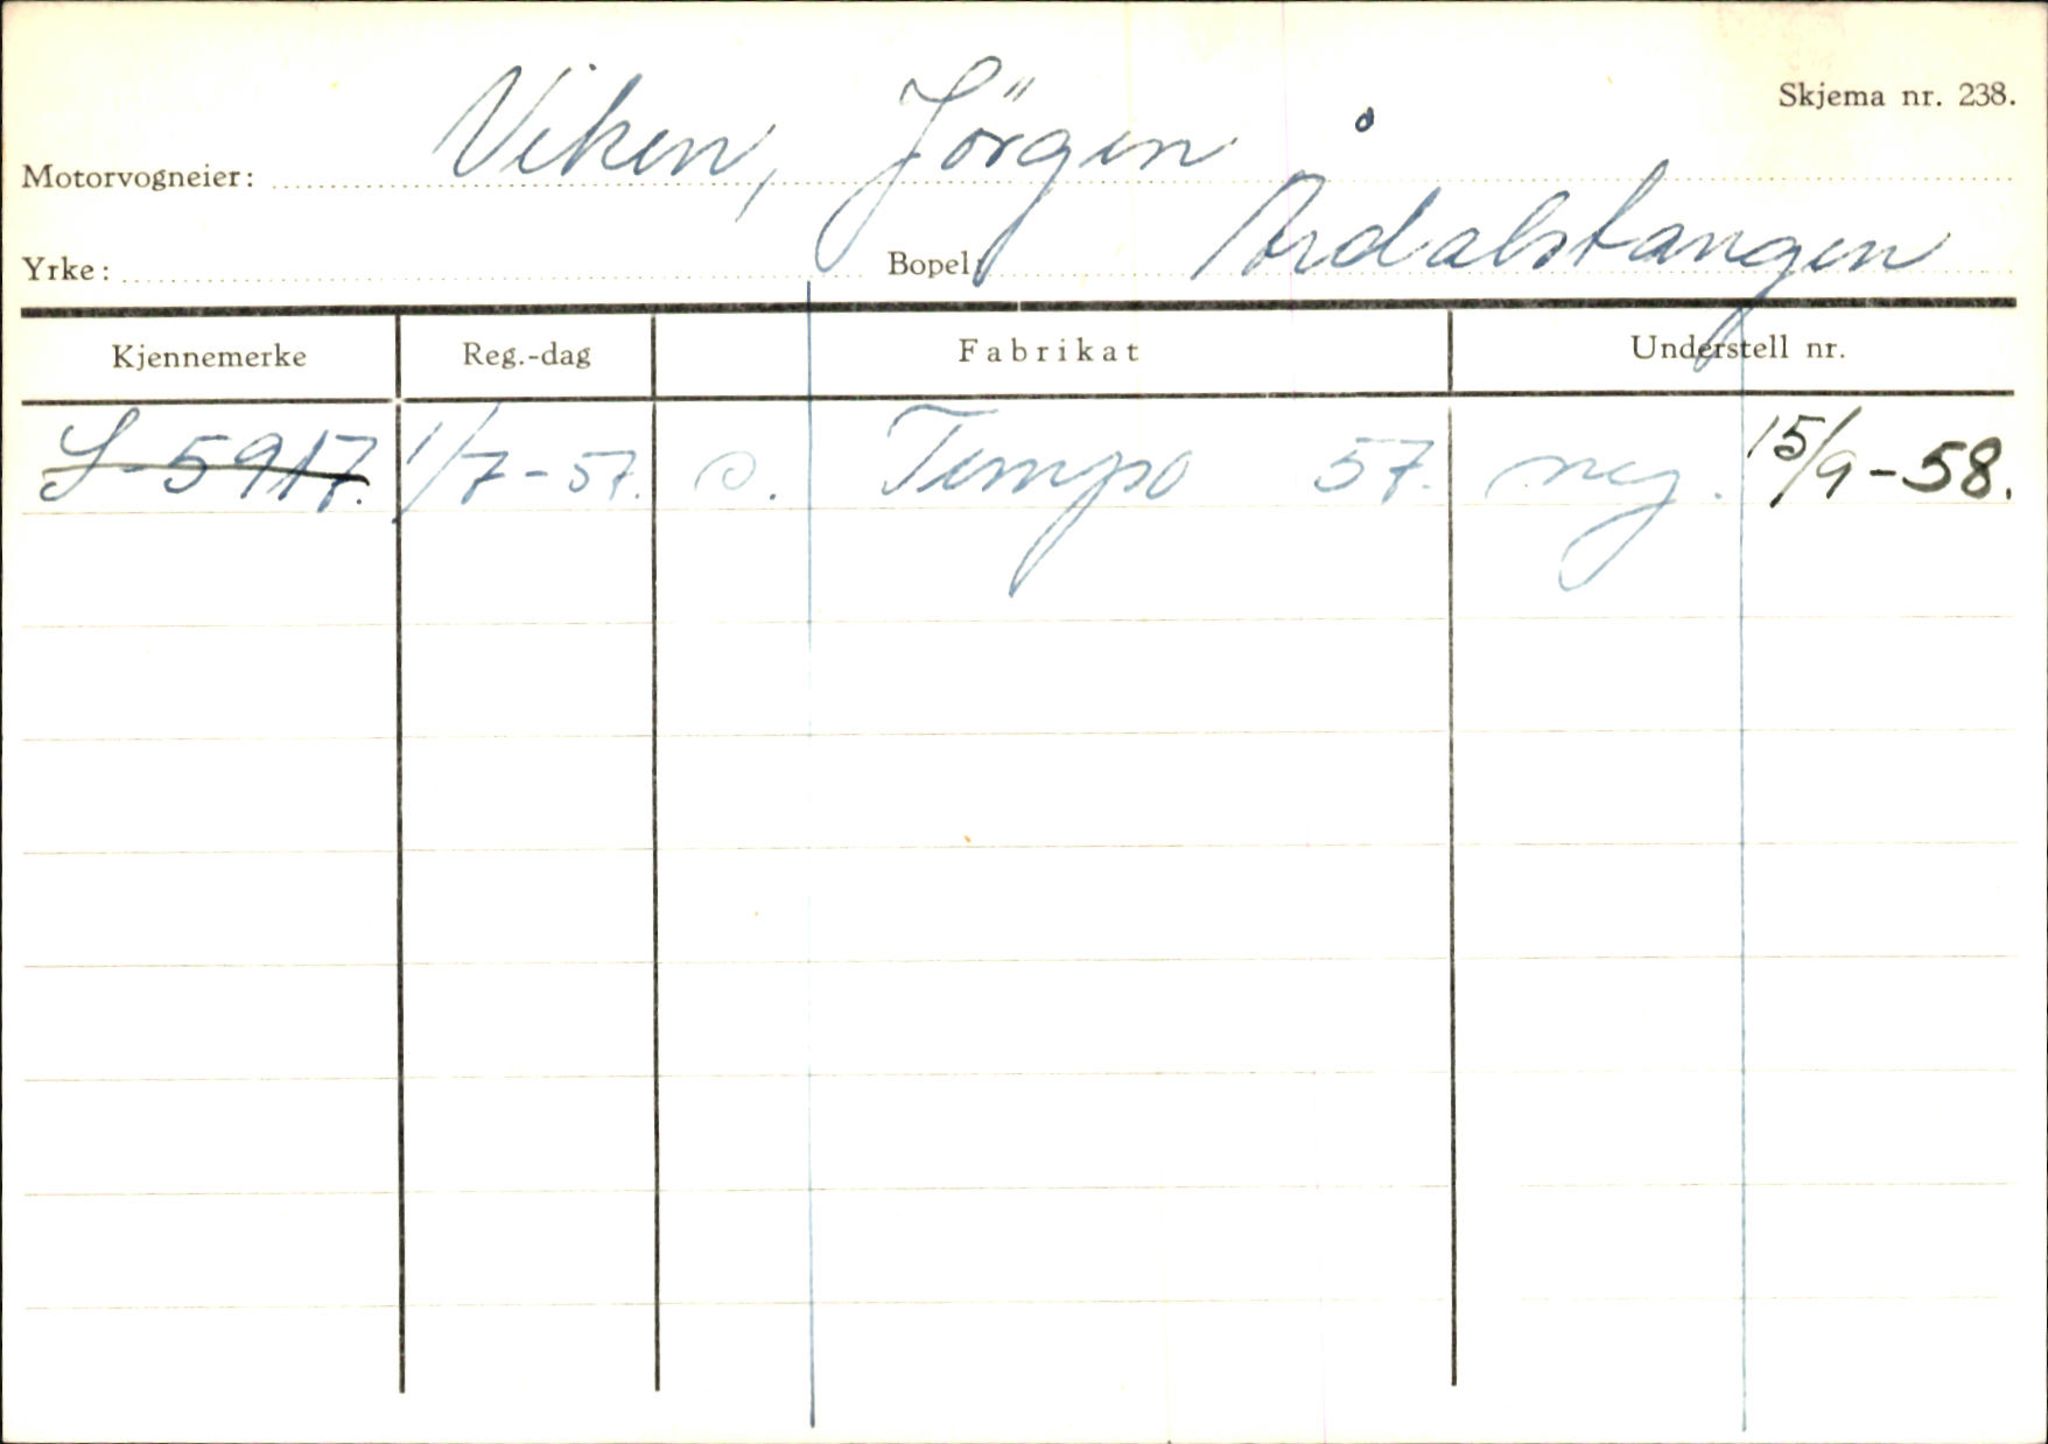 Skjema nr. 238.
Motorvogneier: Viken, Jörgen
Yrke: Bopel: Årdalstangen
Kjennemerke Reg.-dag Fabrikat Understell nr.
S-5917. 1/7-57. o. Tempo 57. ny. 15/9-58.